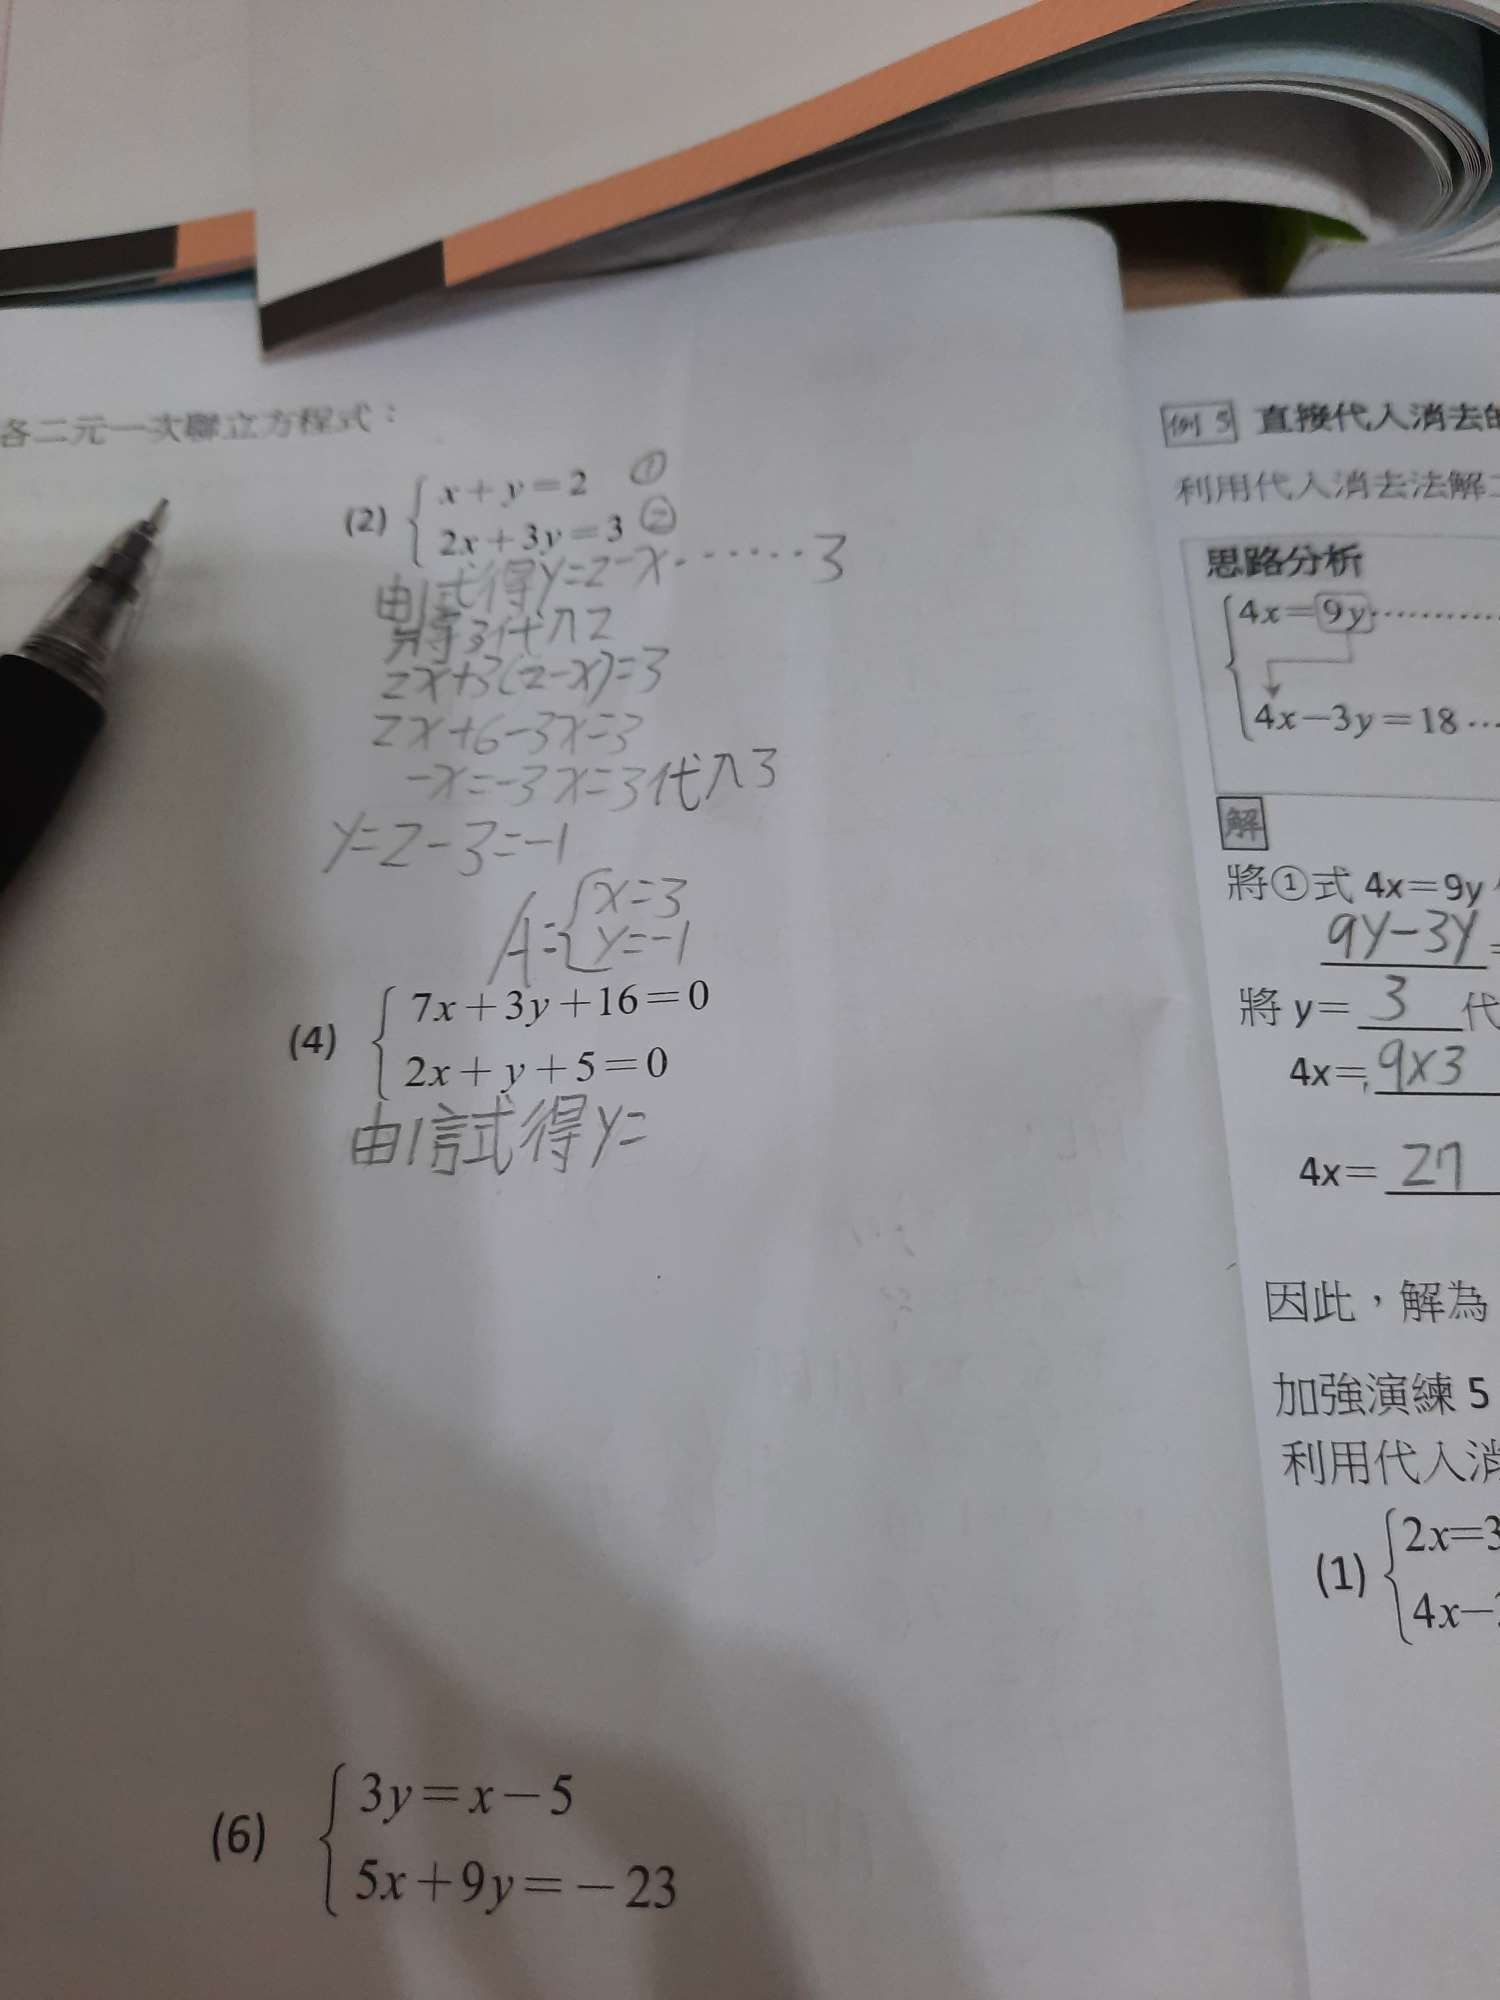 各二元一次聯立方程式：
(2) { x＋y＝2 ①
2x＋3y＝3 ②
由1式得y=2-x.......3
將3代入2
2x+3(2-x)=3
2x+6-3x=3
-x=-3 x=3代入3
y=2-3=-1
A={x=3
y=-1
(4) { 7x＋3y＋16＝0
2x＋y＋5＝0
由1試得y=
(6) { 3y＝x－5
5x＋9y＝－23
例 5 直接代入消去的
利用代入消去法解二
思路分析
{ 4x＝9y…………
4x－3y＝18…
解
將①式 4x＝9y
9y-3y =
將 y＝ 3 代
4x＝ 9x3
4x＝ 27
因此，解為
加強演練 5
利用代入消
(1) { 2x＝3
4x－